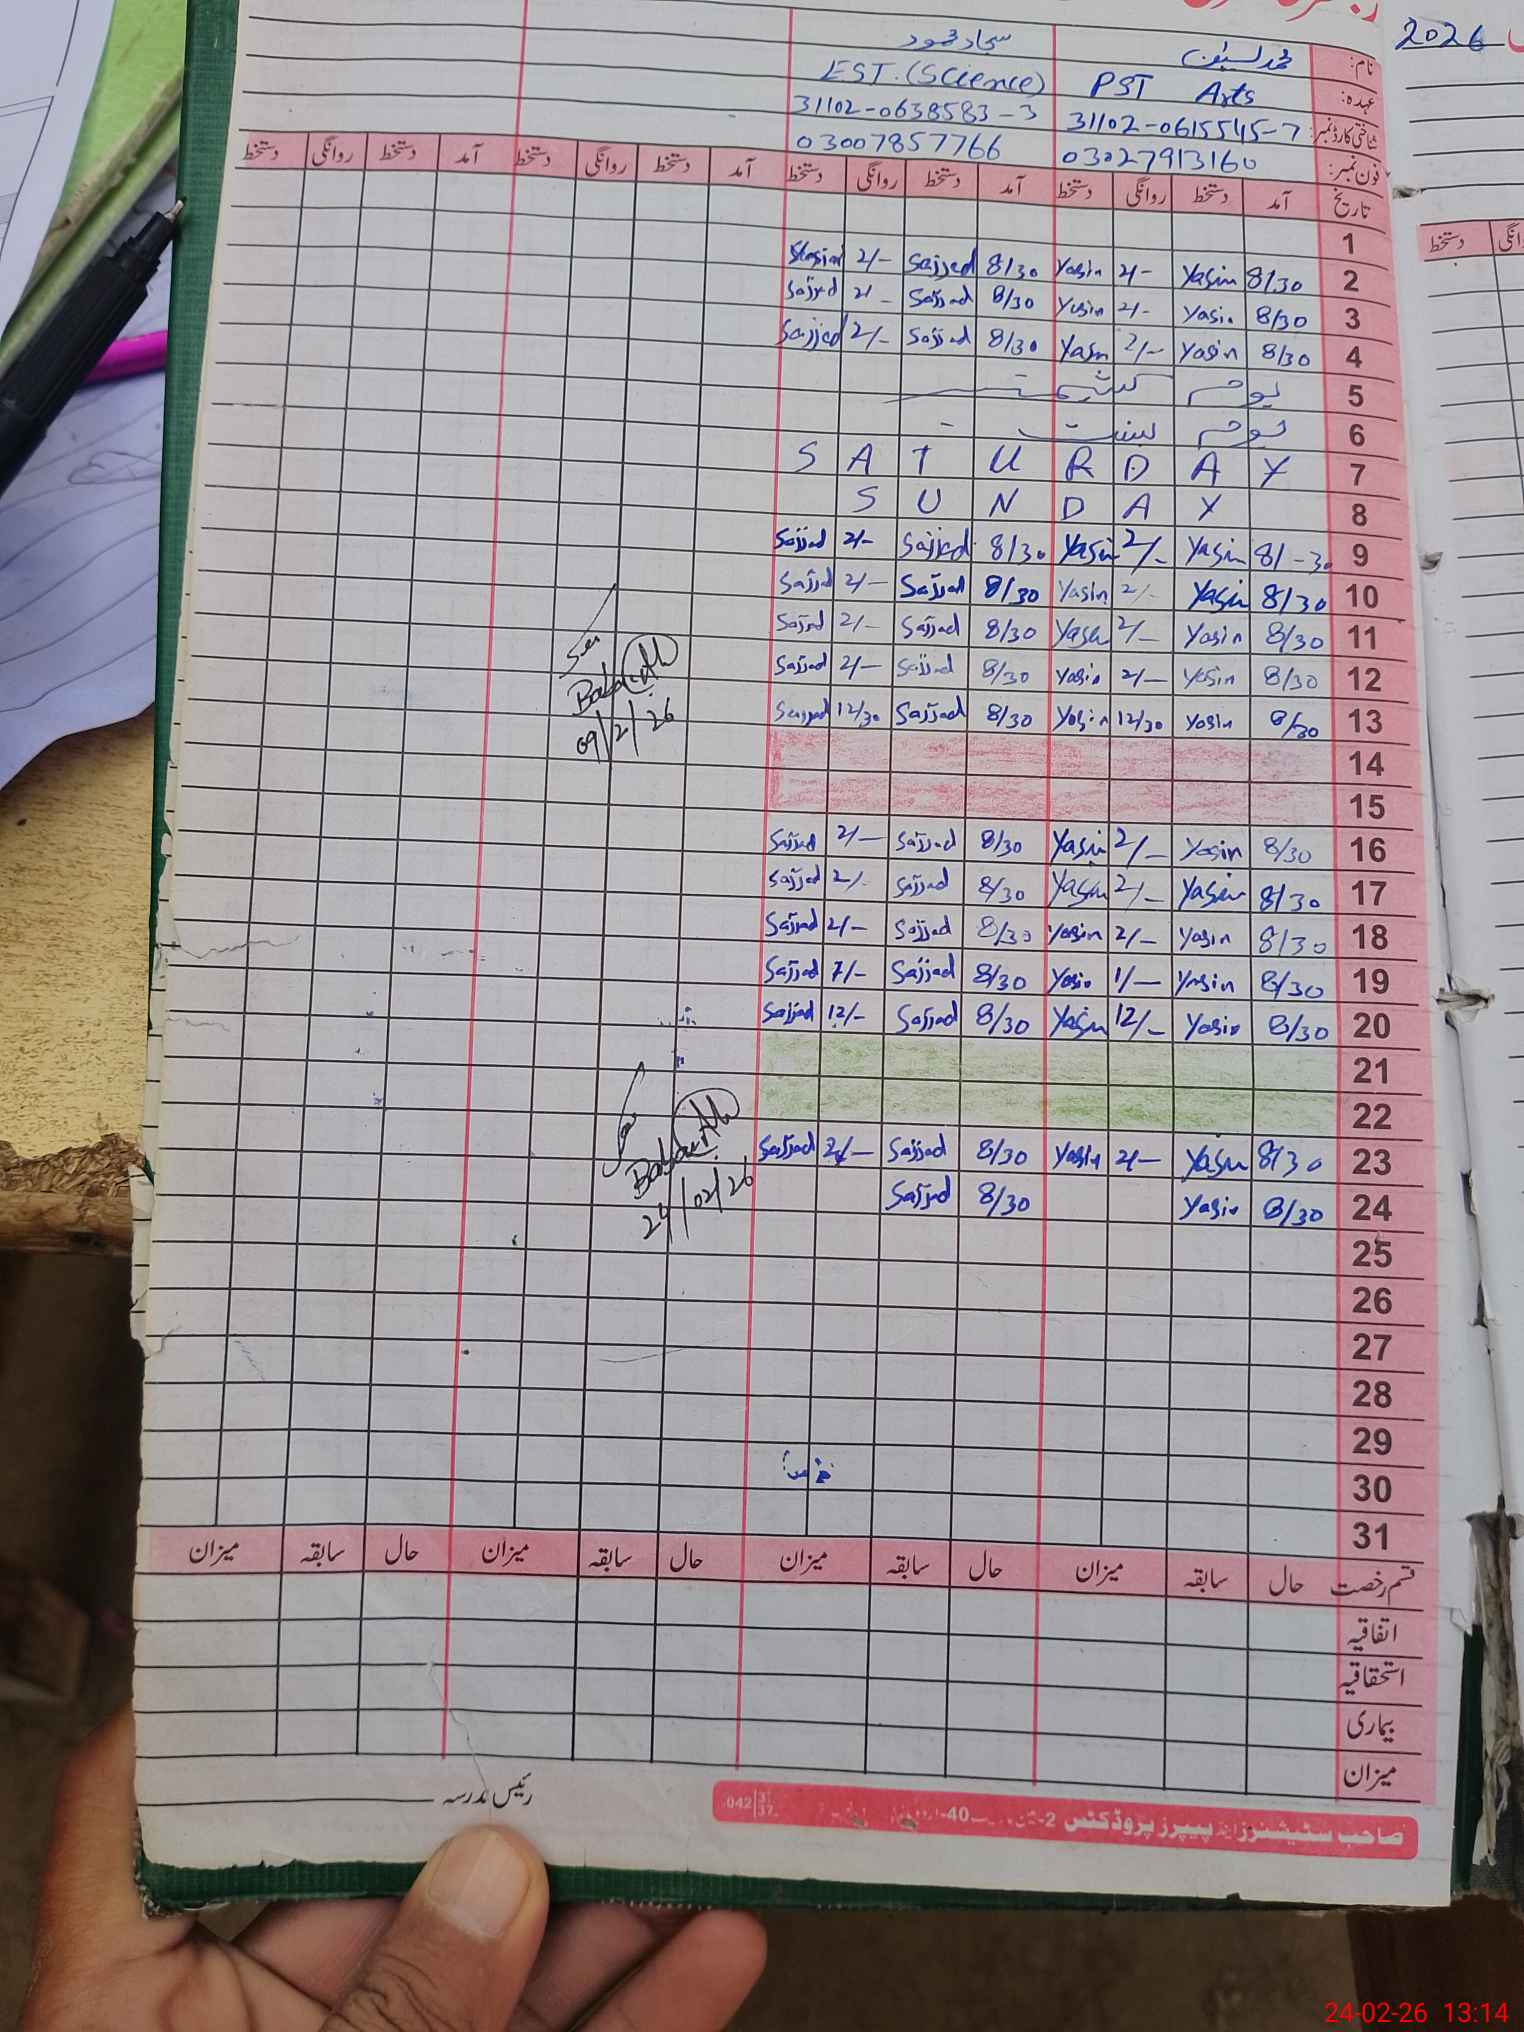 2026
نام: محمد یٰسین سجاد محمود
عہدہ: PST Arts EST.(Science)
شناختی کارڈ نمبر: 31102-0615545-7 31102-0638583-3
فون نمبر: 03027913160 03007857766
تاریخ آمد دستخط روانگی دستخط آمد دستخط روانگی دستخط آمد دستخط روانگی دستخط آمد دستخط روانگی دستخط
روانگی دستخط
1
2 8/30 Yasin 2/- Yasin 8/30 Sajjad 2/-
3 8/30 Yasin 2/- Yasin 8/30 Sajjad 2/- Sajjad
4 8/30 Yasin 2/- Yasin 8/30 Sajjad 2/- Sajjad
5 یوم کشمیر
6 یوم بسنت -
7 S A T U R D A Y
8 S U N D A Y
9 8/-30 Yasin 2/- Yasin 8/30 Sajjad 2/- Sajjad
10 8/30 Yasin 2/- Yasin 8/30 Sajjad 2/- Sajjad
11 8/30 Yasin 2/- Yasin 8/30 Sajjad 2/- Sajjad
12 8/30 Yasin 2/- Yasin 8/30 Sajjad 2/- Sajjad
13 8/30 Yasin 12/30 Yasin 8/30 Sajjad 12/30 Sajjad
09/2/26
14
15
16 8/30 Yasin 2/- Yasin 8/30 Sajjad 2/- Sajjad
17 8/30 Yasin 2/- Yasin 8/30 Sajjad 2/- Sajjad
18 8/30 Yasin 2/- Yasin 8/30 Sajjad 2/- Sajjad
19 8/30 Yasin 1/- Yasin 8/30 Sajjad 1/- Sajjad
20 8/30 Yasin 12/- Yasin 8/30 Sajjad 12/- Sajjad
21
22
23 8/30 Yasin 2/- Yasin 8/30 Sajjad 2/- Sajjad
24 8/30 Yasin 8/30 Sajjad
24/02/26
25
26
27
28
29
30
31
قسم رخصت حال سابقہ میزان حال سابقہ میزان حال سابقہ میزان حال سابقہ میزان
اتفاقیہ
استحقاقیہ
بیماری
میزان
رئیس مدرسہ
صاحب سٹیشنرز اینڈ پیپرز پروڈکٹس 2- 40-
042
24-02-26 13:14